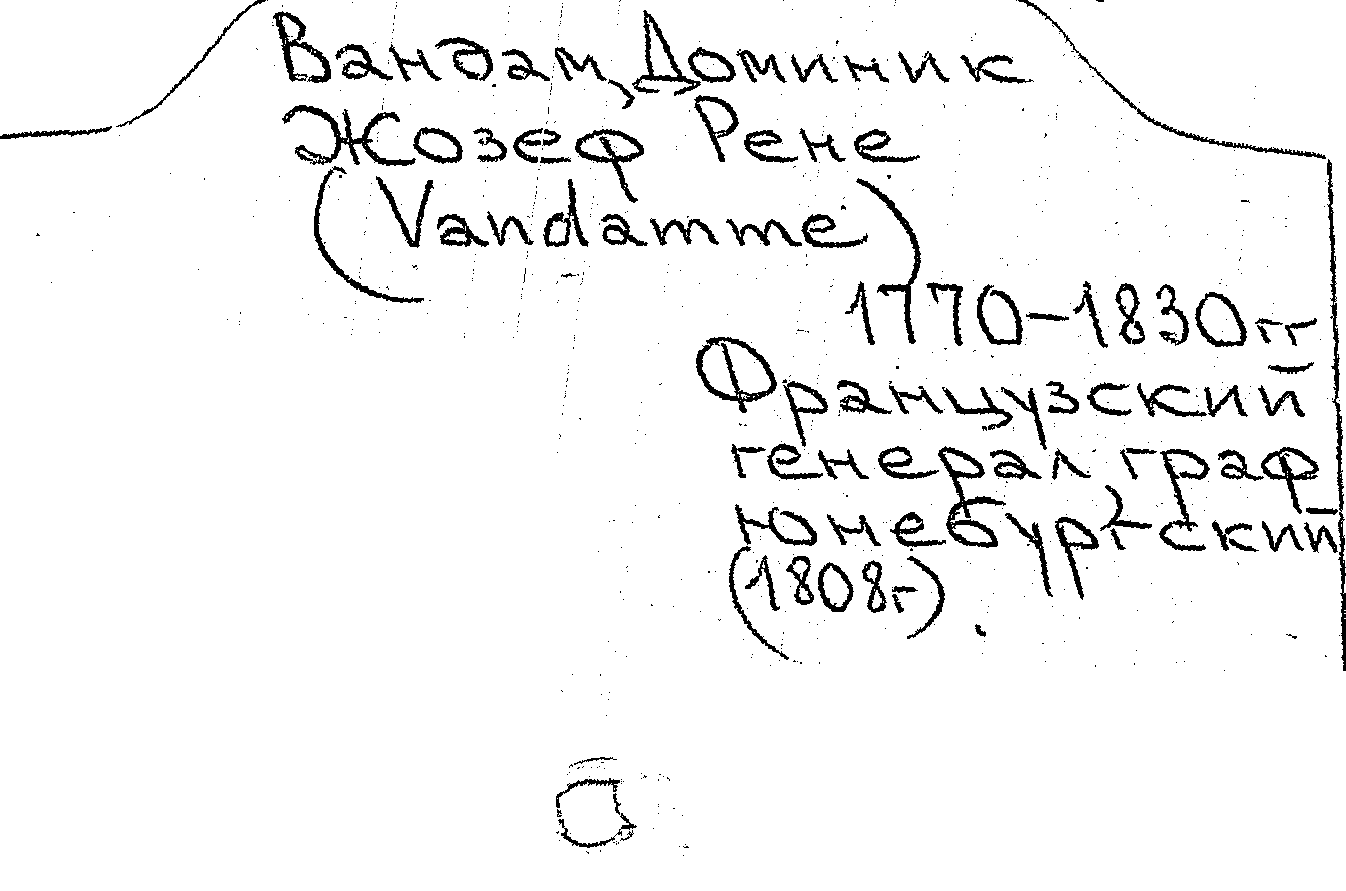 Вандам, Доминик
Жозеф Рене
(Vandamme)
1770-1830гг
Французский
генерал, граф
юнебургский
(1808г)